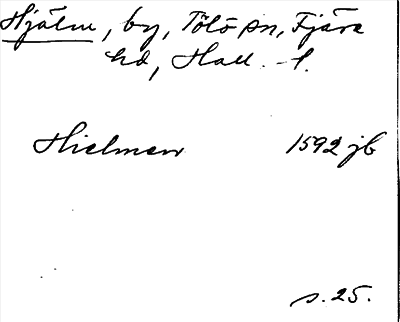 Hjälm, by, Tölö sn, Fjäre
hd, Hall. l.
Hielmen 1592 jb
s. 25.